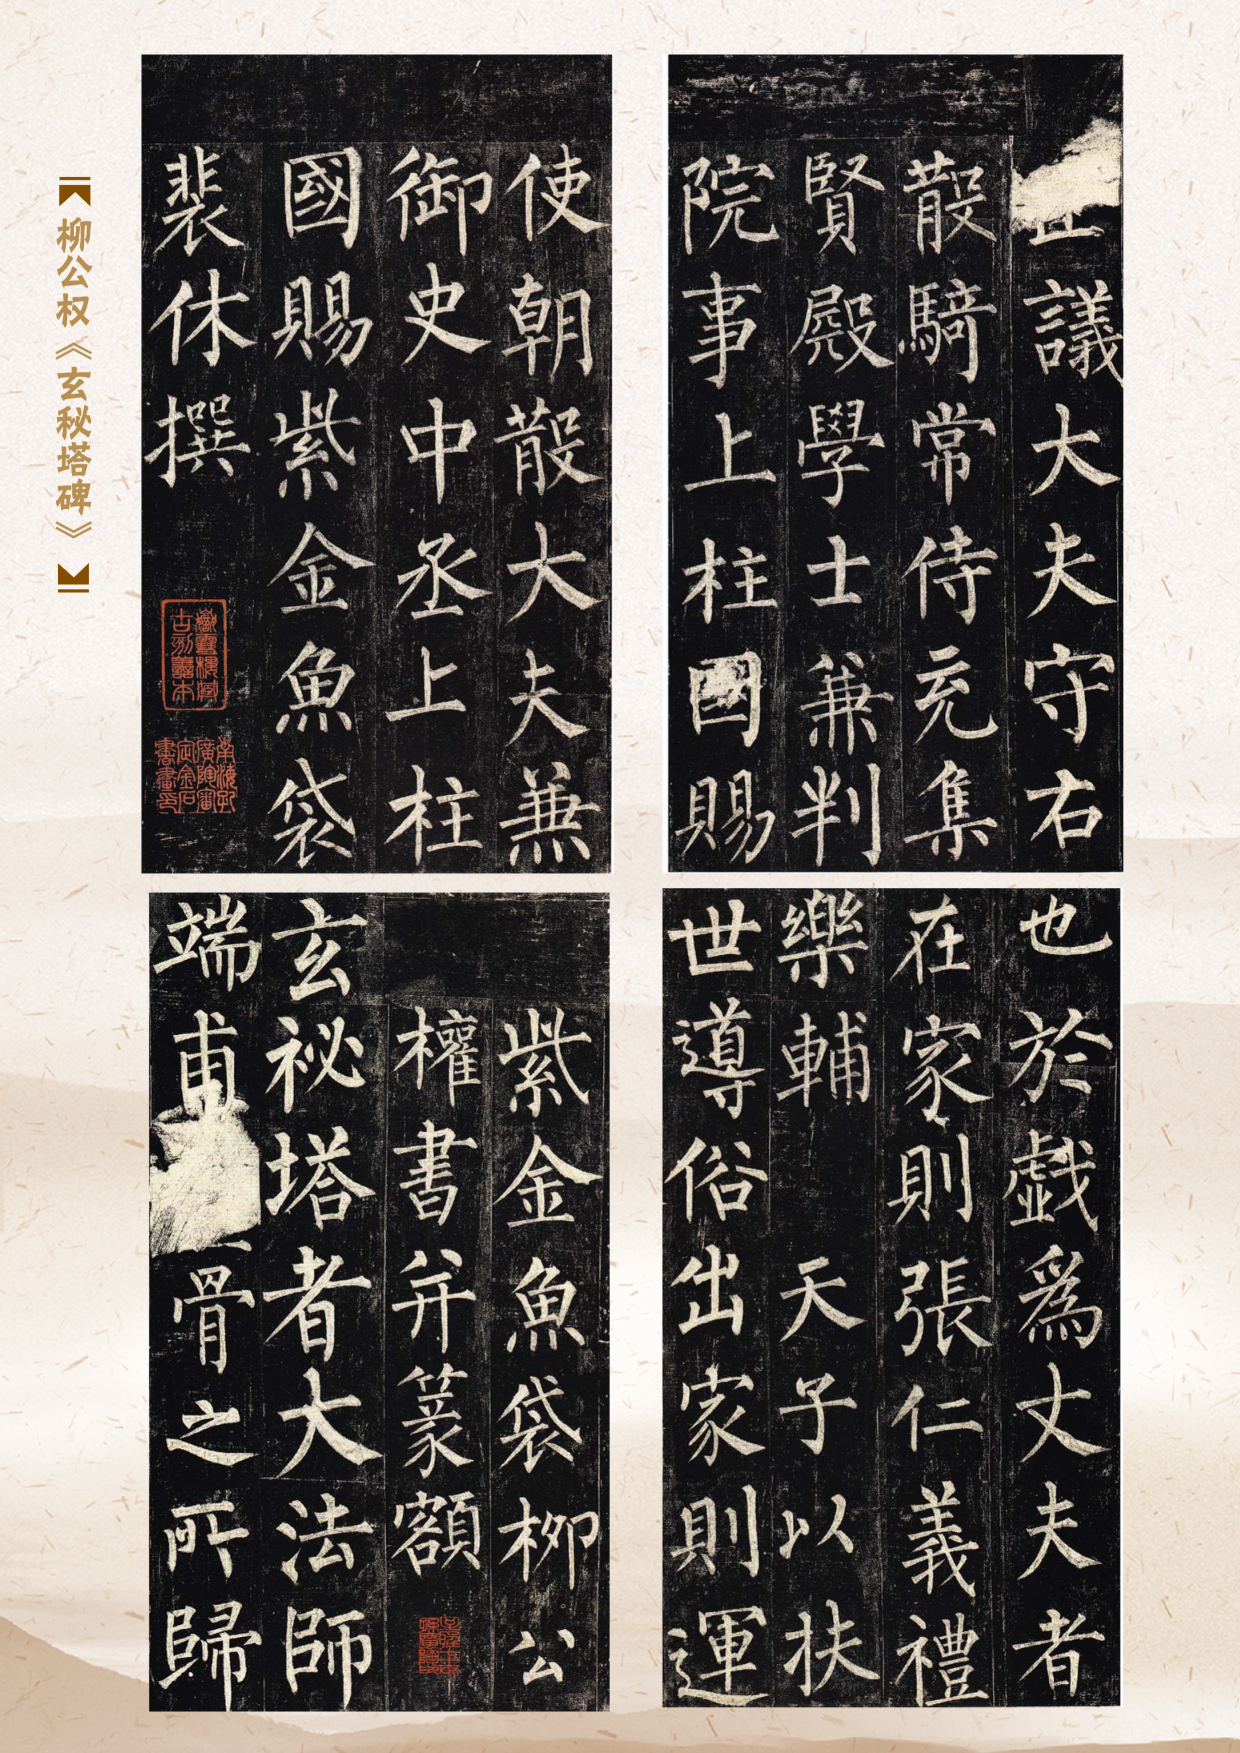 柳公权《玄秘塔碑》
使朝散大夫兼
御史中丞上柱
國賜紫金魚袋
裴休撰
南海孔
廣陶審
定金石
書畫印
正議大夫守右
散騎常侍充集
賢殿學士兼判
院事上柱國賜
紫金魚袋柳公
權書并篆額
玄祕塔者大法師
端甫骨之所歸
也於戲為丈夫者
在家則張仁義禮
樂輔天子以扶
世導俗出家則運